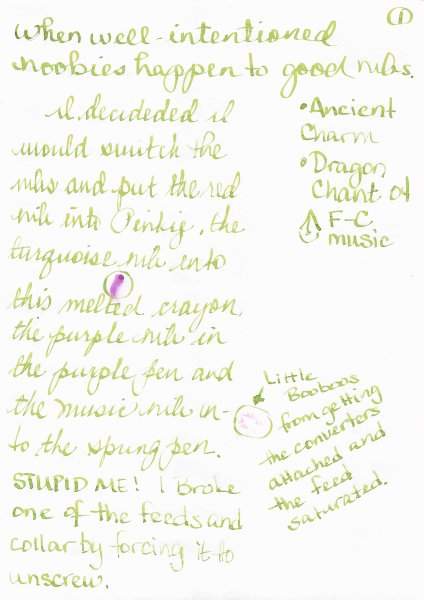 ①
When well-intentioned
noobies happen to good nibs.
I decideded I
would switch the
nibs and put the red
nib into Pinkig, the
turquoise nib into
this melted crayon,
the purple nib in
the purple pen and
the music nib in-
to the spung pen.
STUPID ME! I Broke
one of the feeds and
collar by forcing it to
unscrew.
•Ancient
Charm
•Dragon
Chant of
F-C
music
Little
Booboos
from getting
the converters
attached and
the feed
saturated.